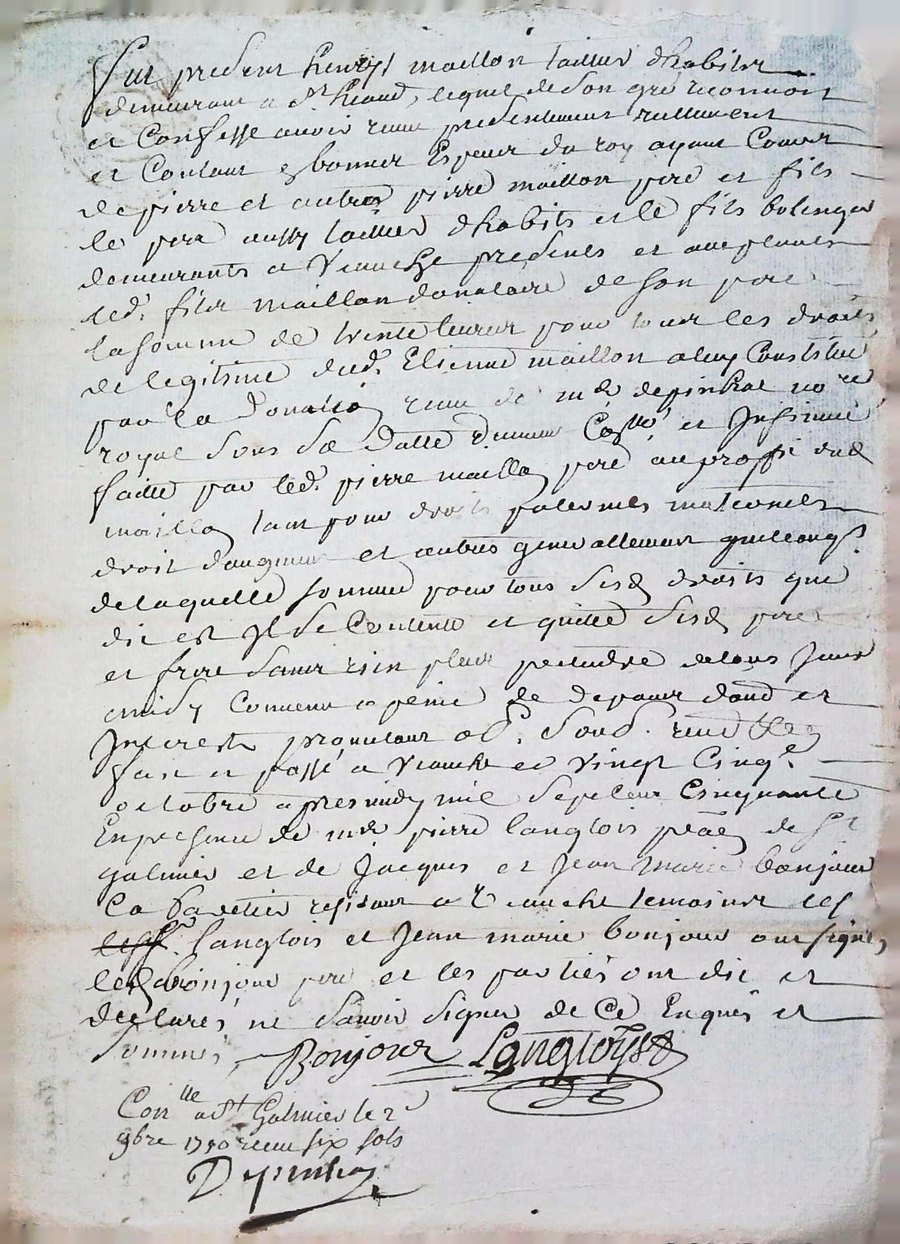 Fut present henry maillon tailleur dhabits
demeurant a St heand, lequel de son gré reconnoit
et Confesse avoir reçeu presentement reellement
et Contant en bonnes Especes du roy ayant Cours
de pierre et autre pierre maillon pere et fils
le pere aussy tailleur dhabits et le fils bolenger
demeurants a Veauche presents et acceptants
led. fils maillon donataire de son pere
la somme de trente livres pour tous les droits
de legitime dud. Etienne maillon a luy Constitué
par la Donation reçeue de me depinhac nore
royal sous sa datte Duement Coller et Insinué
faitte par led. pierre maillon pere au proffit dud
maillon tant pour droits paternels maternels
droit daugment et autres generallement quelconqs.
de laquelle somme pour tous sesd droits que
dit est Il se Contente et quitte sesd pere
et frere sans rien plus pretendre
Convenu a peine de depens dom et
Interests promettant obl. soub. renon
fait et passé a Veauche ce vingt Cinqe.
octobre apres midy mil sept cent Cinquante
En presence de me pierre langlois de St
galmier et de Jacques et Jean Marie bonjour
Cabaretier residant a Veauche temoins les
langlois et Jean marie bonjour ont signé
led bonjour pere et les parties ont dit et
declarés ne savoir signer de Ce Enquis et
sommés, Bonjour Langloisse
Conlle a St Galmier le 2
9bre 1750 reçeu six sols
Depinhac